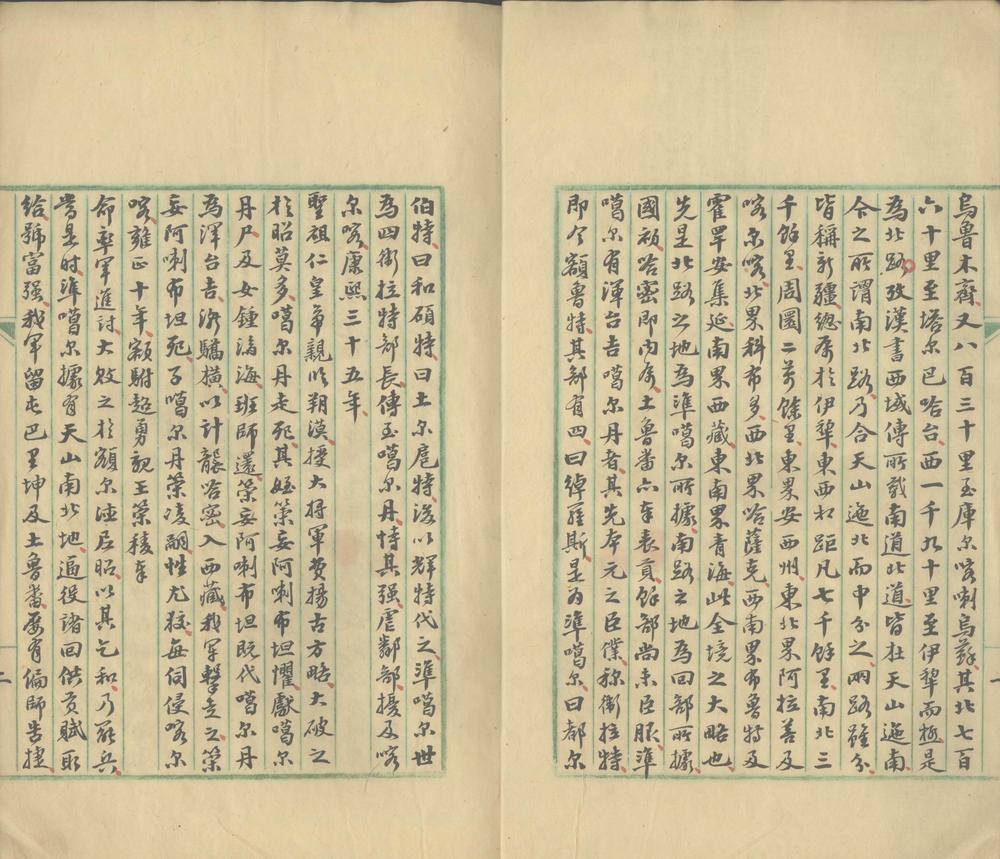 烏魯木齋又八百三十里至庫尔喀喇烏蘇其北七百
六十里至塔尔巴哈台西一千九十里至伊犂而極是
為北路攷漢書西域傳所載南道北道皆在天山迤南
今之所謂南北路乃合天山迤北而中分之兩路雖分
皆稱新疆總屬於伊犂東西相距凡七千餘里南北三
千餘里周圍二萬餘里東界安西州東北界阿拉善及
喀尔喀北界科布多西北界哈薩克西南界布魯特及
霍罕安集延南界西藏東南界青海此全境之大略也
先是北路之地為準噶尔所據南路之地為回部所據
國初哈密即內屬土魯番亦奉表貢餘部尚未臣服準
噶尔有渾台吉噶尔丹者其先本元之臣僕称衛拉特
即今額魯特其部有四曰綽羅斯是為準噶尔曰都尔
伯特曰和碩特曰土尔扈特後以輝特代之準噶尔世
為四衛拉特部長傳至噶尔丹恃其強虐鄰部擾及喀
尔喀康熙三十五年
聖祖仁皇帝親臨朔漠授大將軍費揚古方略大破之
於昭莫多噶尔丹走死其姪策妄阿喇布坦懼獻噶尔
丹尸及女鍾濟海班師還策妄阿喇布坦既代噶尔丹
為渾台吉漸驕橫以計襲哈密入西藏我軍擊走之策
妄阿喇布坦死子噶尔丹策凌嗣性尤狡每伺侵喀尔
喀雍正十年額駙超勇親王策稜奉
命率軍進討大敗之於額尔德尼昭以其乞和乃罷兵
當是時準噶尔據有天山南北地逼役諸回供貢賦取
給號富强我軍留屯巴里坤及土魯番屢有偏師告捷
一
二